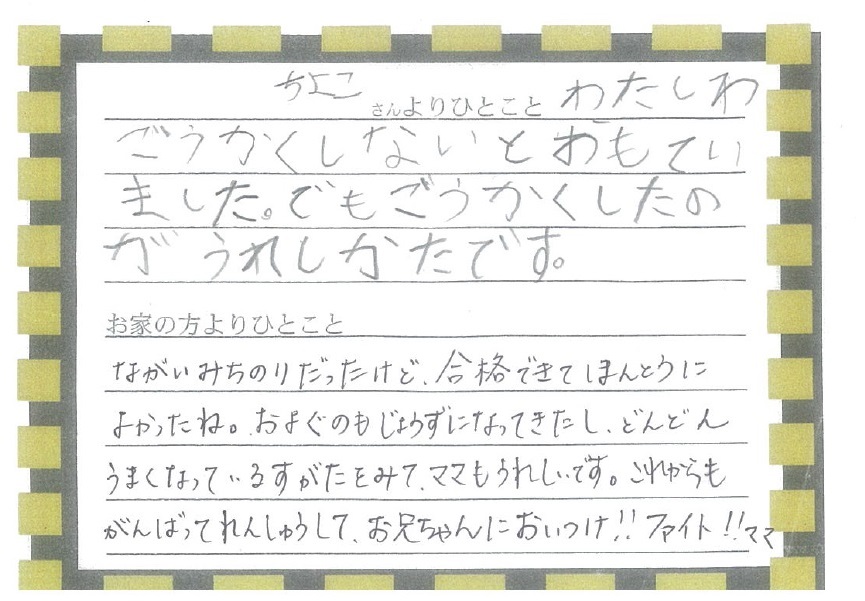 ちよこ さんよりひとこと わたしわ
ごうかくしないとおもてい
ました。でもごうかくしたの
がうれしかたです。
お家の方よりひとこと
ながいみちのりだったけど、合格できてほんとうに
よかったね。およぐのもじょうずになってきたし、どんどん
うまくなっているすがたをみて、ママもうれしいです。これからも
がんばってれんしゅうして、お兄ちゃんにおいつけ!! ファイト!! ママ